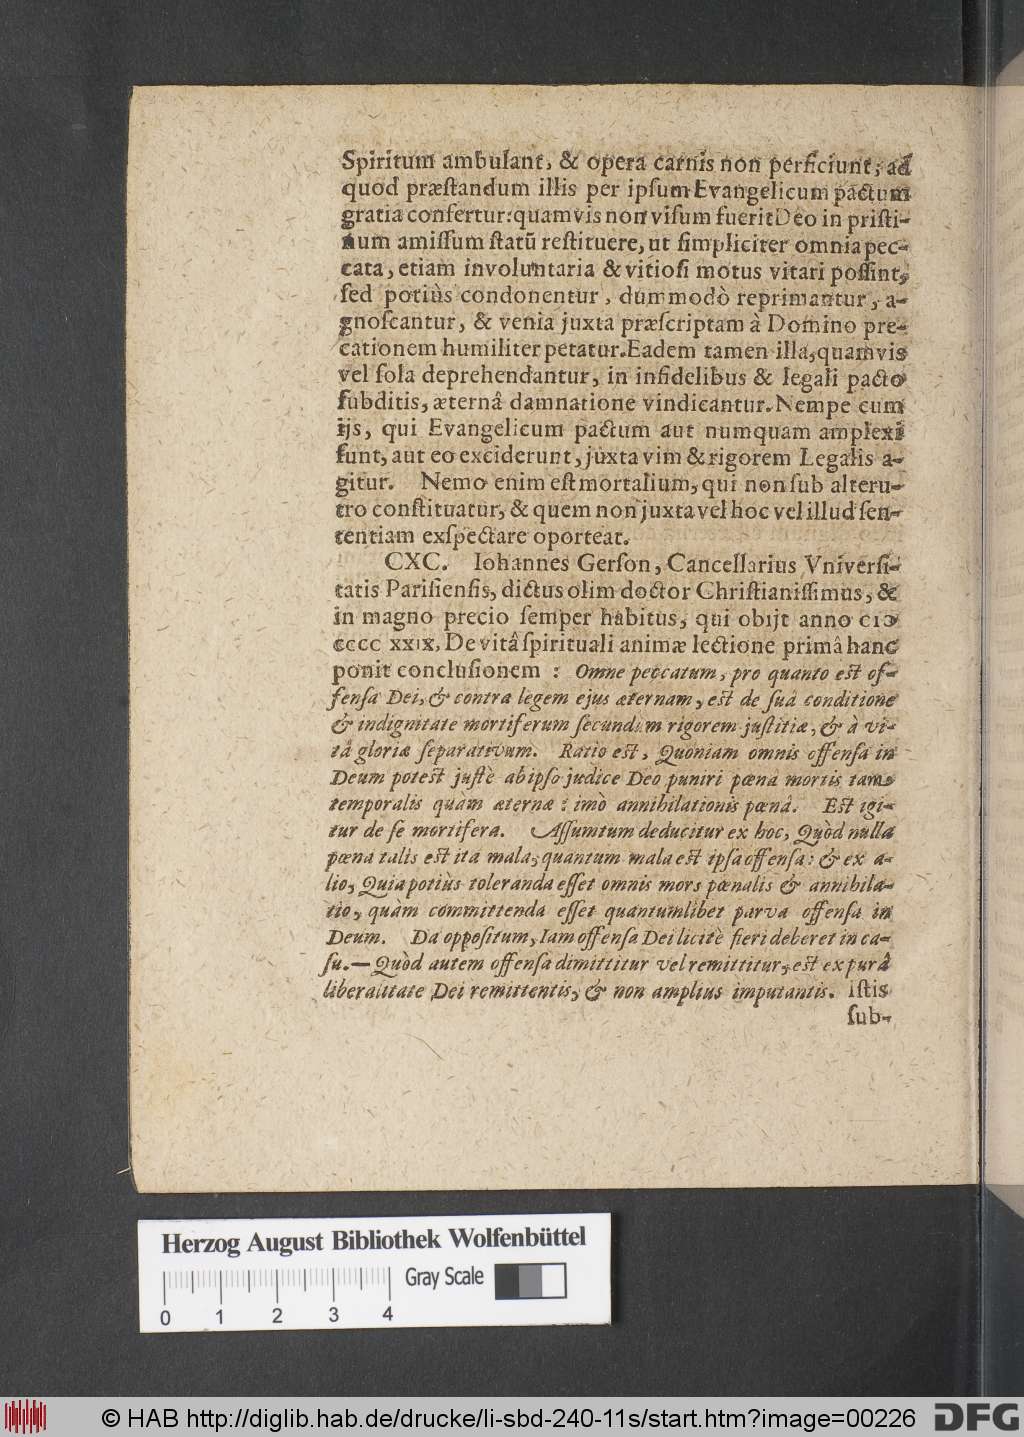 Spiritum ambulant, & opera carnis non perficiunt; ad
quod præstandum illis per ipsum Evangelicum pactum
gratia confertur: quamvis non visum fuerit Deo in pristi-
num amissum statū restituere, ut simpliciter omnia pec-
cata, etiam involuntaria & vitiosi motus vitari possint,
sed potiùs condonentur, dummodò reprimantur, a-
gnoscantur, & venia juxta præscriptam à Domino pre-
cationem humiliter petatur. Eadem tamen illa, quamvis
vel sola deprehendantur, in infidelibus & legali pacto
subditis, æternâ damnatione vindicantur. Nempe cum
ijs, qui Evangelicum pactum aut numquam amplexi
sunt, aut eo exciderunt, juxta vim & rigorem Legalis a-
gitur. Nemo enim est mortalium, qui non sub alteru-
tro constituatur, & quem non juxta vel hoc vel illud sen-
tentiam exspectare oporteat.
CXC. Iohannes Gerson, Cancellarius Vniversi-
tatis Parisiensis, dictus olim doctor Christianissimus, &
in magno precio semper habitus, qui obijt anno cIↄ
cccc xxix, De vitâ spirituali animæ lectione primâ hanc
ponit conclusionem : Omne peccatum, pro quanto est of-
fensa Dei, & contra legem ejus æternam, est de suâ conditione
& indignitate mortiferum secundum rigorem justitiæ, & à vi-
tâ gloriæ separativum. Ratio est, Quoniam omnis offensa in
Deum potest justè ab ipso judice Deo puniri pœnâ mortis tam
temporalis quàm æternæ : imò annihilationis pœnâ. Est igi-
tur de se mortifera. Assumtum deducitur ex hoc, Quòd nulla
pœna talis est ita mala, quantum mala est ipsa offensa : & ex a-
lio, Quia potiùs toleranda esset omnis mors pœnalis & annihila-
tio, quàm committenda esset quantumlibet parva offensa in
Deum. Da oppositum, Iam offensa Dei licitè fieri deberet in ca-
su.— Quòd autem offensa dimittitur vel remittitur, est ex purâ
liberalitate Dei remittentis, & non amplius imputantis. istis
sub-
Herzog August Bibliothek Wolfenbüttel
Gray Scale
0 1 2 3 4
© HAB http://diglib.hab.de/drucke/li-sbd-240-11s/start.htm?image=00226
DFG